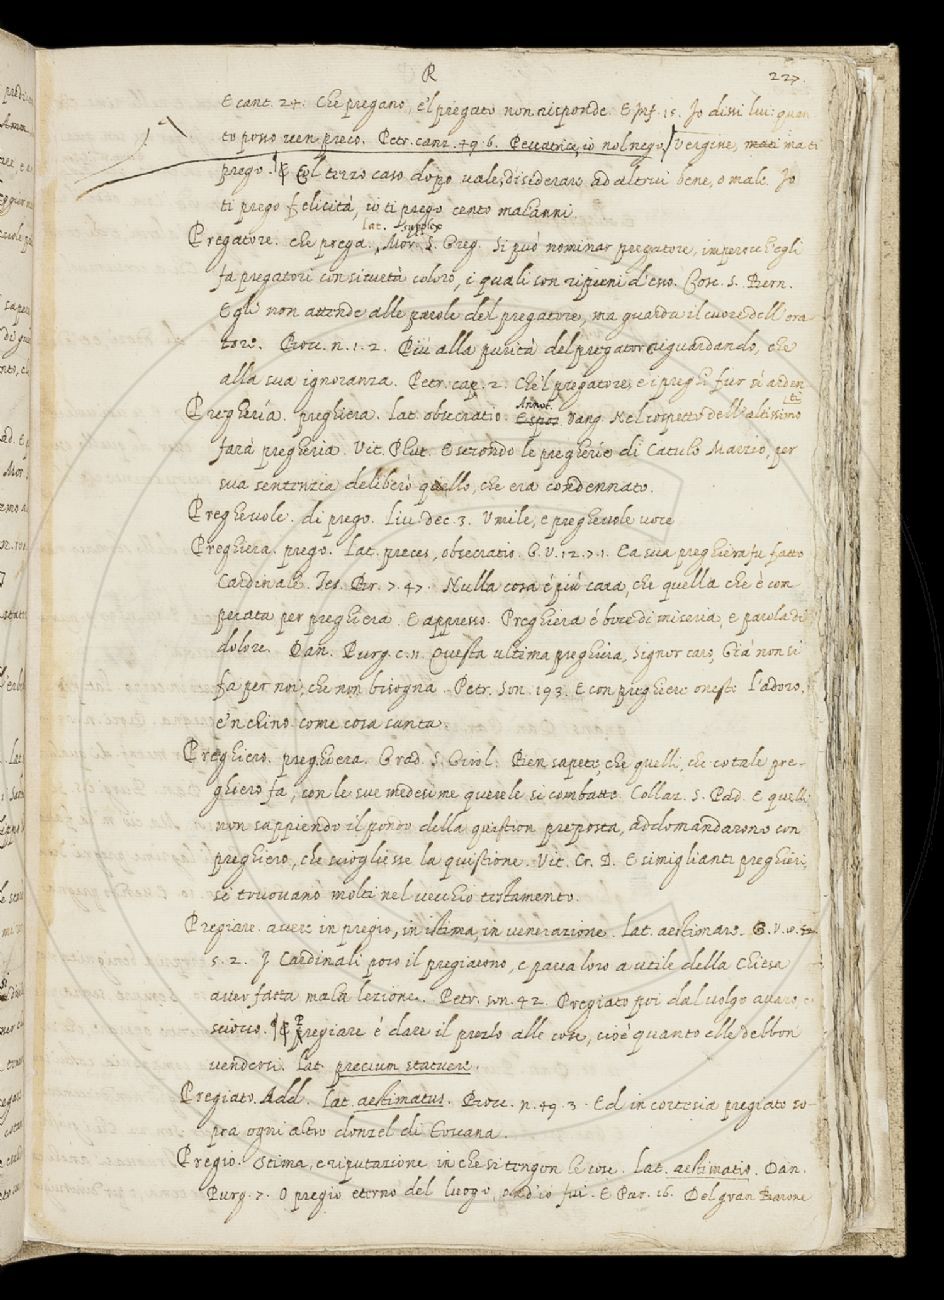 R 227.
E cant. 24. Che pregano, e'l pregato non risponde. E Inf. 15. Io dissi lui: quan
to posso ven preco. Petr. canz. 49. 6. Peccatrice, io nol nego, Vergine, mati ma ti
prego. ¶ E Col terzo caso dopo vale, disiderare ad altrui bene, o male. Io
ti prego felicità, io ti prego cento malanni.
Lat. supplex
Pregatore. che prega. Mor. S. Greg. Si può nominar pregatore, imperocch'egli
fa pregatori consituetà coloro, i quali son ripieni d'esso. Cose. S. Bern.
Egli non attende alle parole del pregatore, ma guarda il cuore dell'ora
tore. Bocc. n. 1. 2. Più alla purità del pregator riguardando, che
alla sua ignoranza. Petr. cap. 2. Che'l pregatore, e i preghi fur sì arden
ti
Annot.
Pregherìa. preghiera. Lat. obsecratio. Espos. Vang. Nel cospetto dell'altissimo
farà pregherìa. Vit. Plut. E secondo le pregherìe di Catulo Marzio, per
sua sentenzia deliberò quello, che era condennato.
Preghevole. di prego. Liv. dec. 3. Umile, e preghevole voce
Preghiera. prego. Lat. preces, obsecratio. G. V. 12. 7. 1. E a sua preghiera fu fatto
Cardinale. Tes. Br. 7. 47. Nulla cosa è più cara, che quella che è con
perata per preghiera. E appresso. Preghiera è boce di miseria, e parola di
dolore. Dan. Purg. c. 11. Questa ultima preghiera, Signor caro, Già non si
fa per noi, che non bisogna. Petr. Son. 193. E con preghiere oneste L'adoro,
e'nchino come cosa santa.
Preghiero. preghiera. Grad. S. Girol. Ben sapete, che quelli, che cotale pre-
ghiero fa, con le sue medesime querele si combatte. Collaz. S. Pad. E quelli
non sappiendo il pondo della quistion preposta, addomandarono con
preghiero, che sciogliesse la quistione. Vit. Cr. D. E simiglianti preghieri
si truovano molti nel vecchio testamento.
Pregiare. avere in pregio, in istima, in venerazione. Lat. aestimare. G. V. 8.
5. 2. I Cardinali poco il pregiarono, e parea loro a utile della Chiesa
aver fatta mala lezione. Petr. son. 42. Pregiato poi dal volgo avaro, e
sciocco. ¶ E Pregiare è dare il prezzo alle cose, cioè quanto elle debbon
vendersi. Lat. precium statuere.
Pregiato. Add. Lat. aestimatus. Bocc. n. 49. 3. Ed in cortesia pregiato so-
pra ogni altro donzel di Toscana.
Pregio. Stima, e riputazione in che si tengon le cose. Lat. aestimatio. Dan.
Purg. 7. O pregio eterno del luogo, ond'io fui. E Par. 16. Del gran Barone